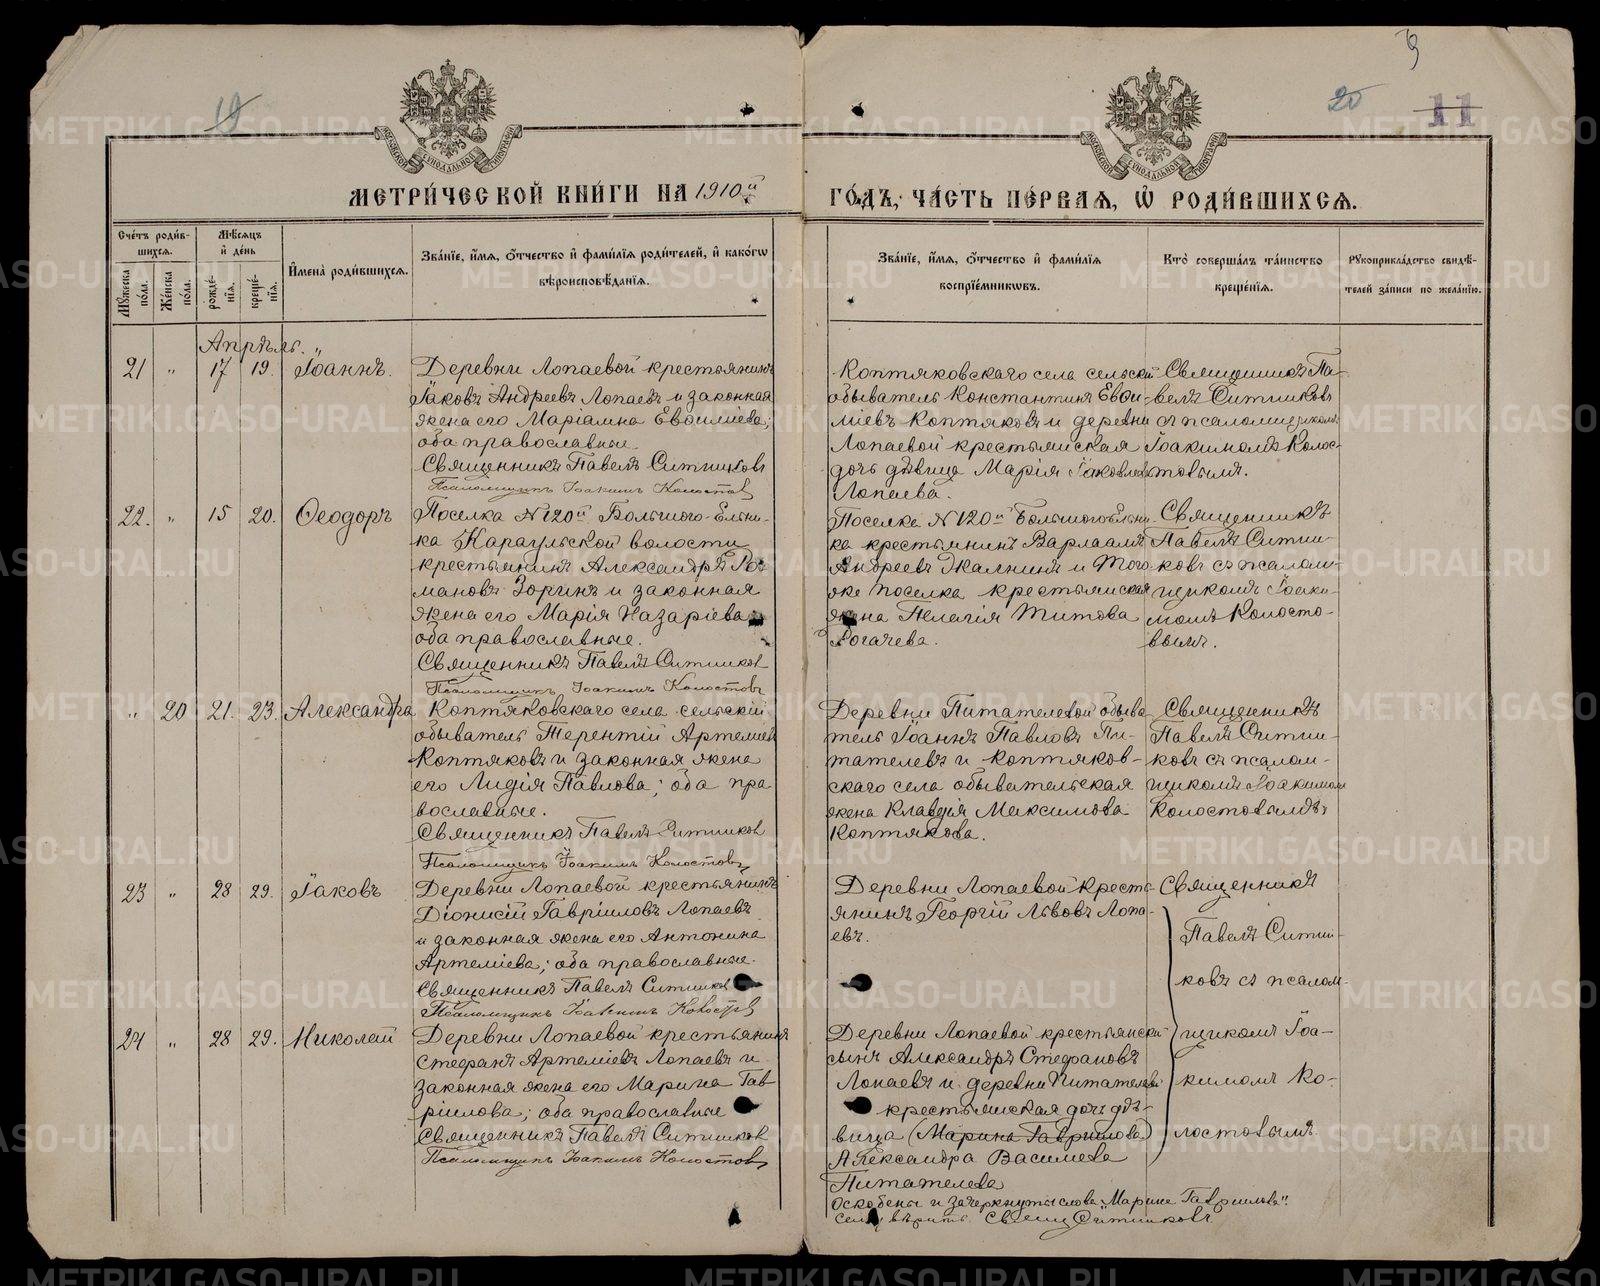 19
20
11
МЕТРИ́ЧЕСКОЙ КНИ́ГИ НА 1910й
ГО́ДЪ, ЧА́СТЬ ПЕ́РВАЯ, Ѡ҆ РОДИ́ВШИХСЯ.
Сче́тъ роди́вшихся.
Мꙋ́жеска по́ла.
Же́нска по́ла.
Мѣ́сяцъ и҆ де́нь
рожде́нїя.
креще́нїя.
И҆мена̀ роди́вшихся.
Зва́нїе, и҆́мя, ѻ҆́тчество и҆ фами́лїя роди́телей, и҆ како́гѡ
вѣроисповѣ́данїя.
Зва́нїе, и҆́мя, ѻ҆́тчество и҆ фами́лїя
воспрїе́мникѡвъ.
Кто̀ соверша́лъ та́инство
креще́нїя.
Рꙋкоприкла́дство свидѣ́-
телей за́писи по жела́нїю.
Апрѣль.
21 " 17 19. Іоаннъ.
Деревни Лопаевой крестьянинъ
Іаковъ Андреевъ Лопаевъ и законная
жена его Маріамна Евѳиміева;
оба православные.
Священникъ Павелъ Ситниковъ
Псаломщикъ Іоакимъ Колостовъ
Коптяковскаго села сельскій
обыватель Константинъ Евѳи-
міевъ Коптяковъ и деревни
Лопаевой крестьянская
дочь дѣвица Марія Іаковлева
Лопаева.
Священникъ Па-
велъ Ситниковъ
съ псаломщикомъ
Іоакимомъ Колос-
товымъ.
22. " 15 20. Ѳеодоръ
Поселка №120й Большого-Ельни-
ка Караульской волости
крестьянинъ Александръ Ро-
мановъ Зоринъ и законная
жена его Марія Назаріева
оба православные.
Священникъ Павелъ Ситниковъ
Псаломщикъ Іоакимъ Колостовъ
Поселка №120й Большого Ельни-
ка крестьянинъ Варлаамъ
Андреевъ Жалнинъ и того
же поселка крестьянская
жена Пелагія Титова
Рогачева.
Священникъ
Павелъ Ситни-
ковъ съ псалом-
щикомъ Іоаки-
момъ Колосто-
вымъ.
" 20 21. 23. Александра
Коптяковскаго села сельскій
обыватель Терентій Артеміевъ
Коптяковъ и законная жена
его Лидія Павлова; оба пра
вославные.
Священникъ Павелъ Ситников
Псаломщикъ Іоакимъ Колостовъ
Деревни Питателевой обыва
тель Іоаннъ Павловъ Пи-
тателевъ и Коптяков-
скаго села обывательская
жена Клавдія Максимова
Коптякова.
Священникъ
Павелъ Ситни-
ковъ съ псалом-
щикомъ Іоакимом
Колостовымъ
23 " 28 29. Іаковъ
Деревни Лопаевой крестьянинъ
Діонисій Гавріиловъ Лопаевъ
и законная жена его Антонина
Артеміева; оба православные.
Священникъ Павелъ Ситников
Псаломщикъ Іоакимъ Колостов
Деревни Лопаевой кресть-
янинъ Георгій Львовъ Лопа-
евъ.
Священникъ
Павелъ Ситни-
ковъ съ псалом-
щикомъ Іоа-
кимомъ Ко-
лостовымъ.
24 " 28 29. Николай
Деревни Лопаевой крестьянинъ
Стефанъ Артеміевъ Лопаевъ и
законная жена его Марина Гав-
ріилова; оба православные
Священникъ Павелъ Ситников
Псаломщикъ Іоакимъ Колостовъ
Деревни Лопаевой крестьянскій
сынъ Александръ Стефановъ
Лопаевъ и деревни Питателевой
крестьянская дочь дѣ-
вица (Марина Гавриилова)
Александра Васильева
Питателева
Оскобены и зачеркнуты слова „Марине Гавриилова"
Свящ Ситниковъ
METRIKI.GASO-URAL.RU